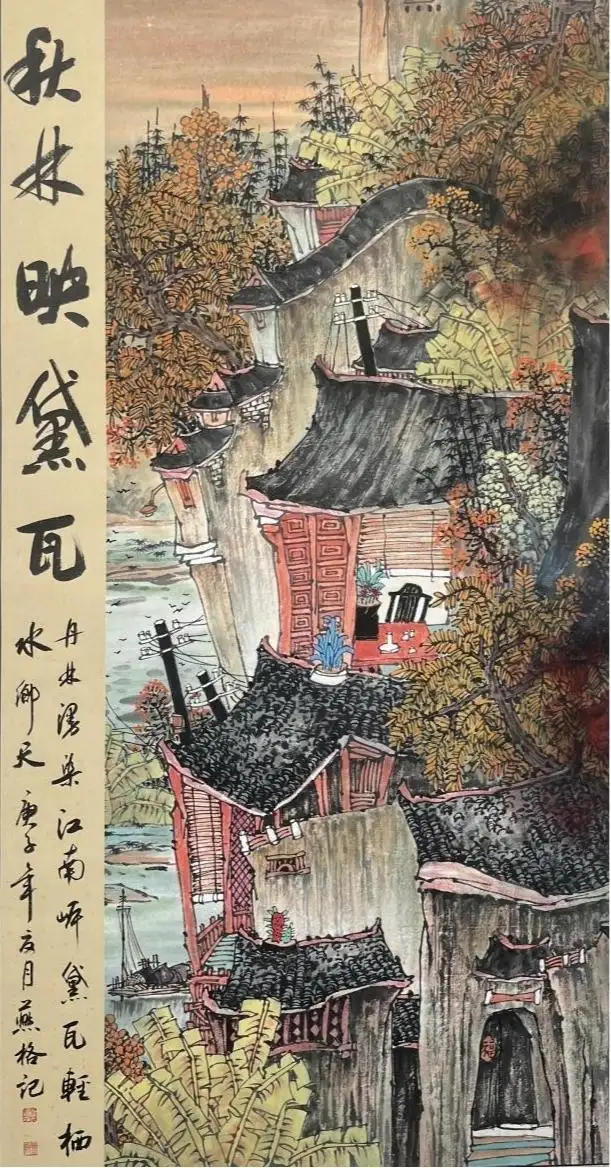 秋林映黛瓦
丹林漫染江南岸黛瓦輕栖
水鄉天庚子年夏月燕格记